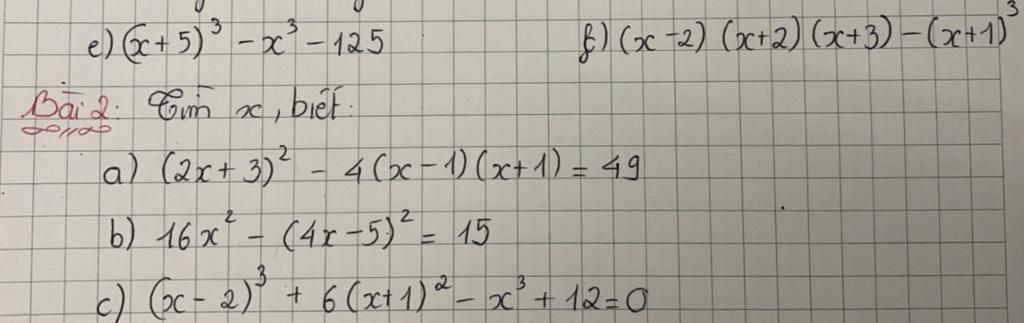 e) (x+5)³ - x³ - 125
f) (x-2) (x+2) (x+3) - (x+1)³
Bài 2: Tìm x, biết:
a) (2x+3)² - 4(x-1)(x+1) = 49
b) 16x² - (4x-5)² = 15
c) (x-2)³ + 6(x+1)² - x³ + 12=0